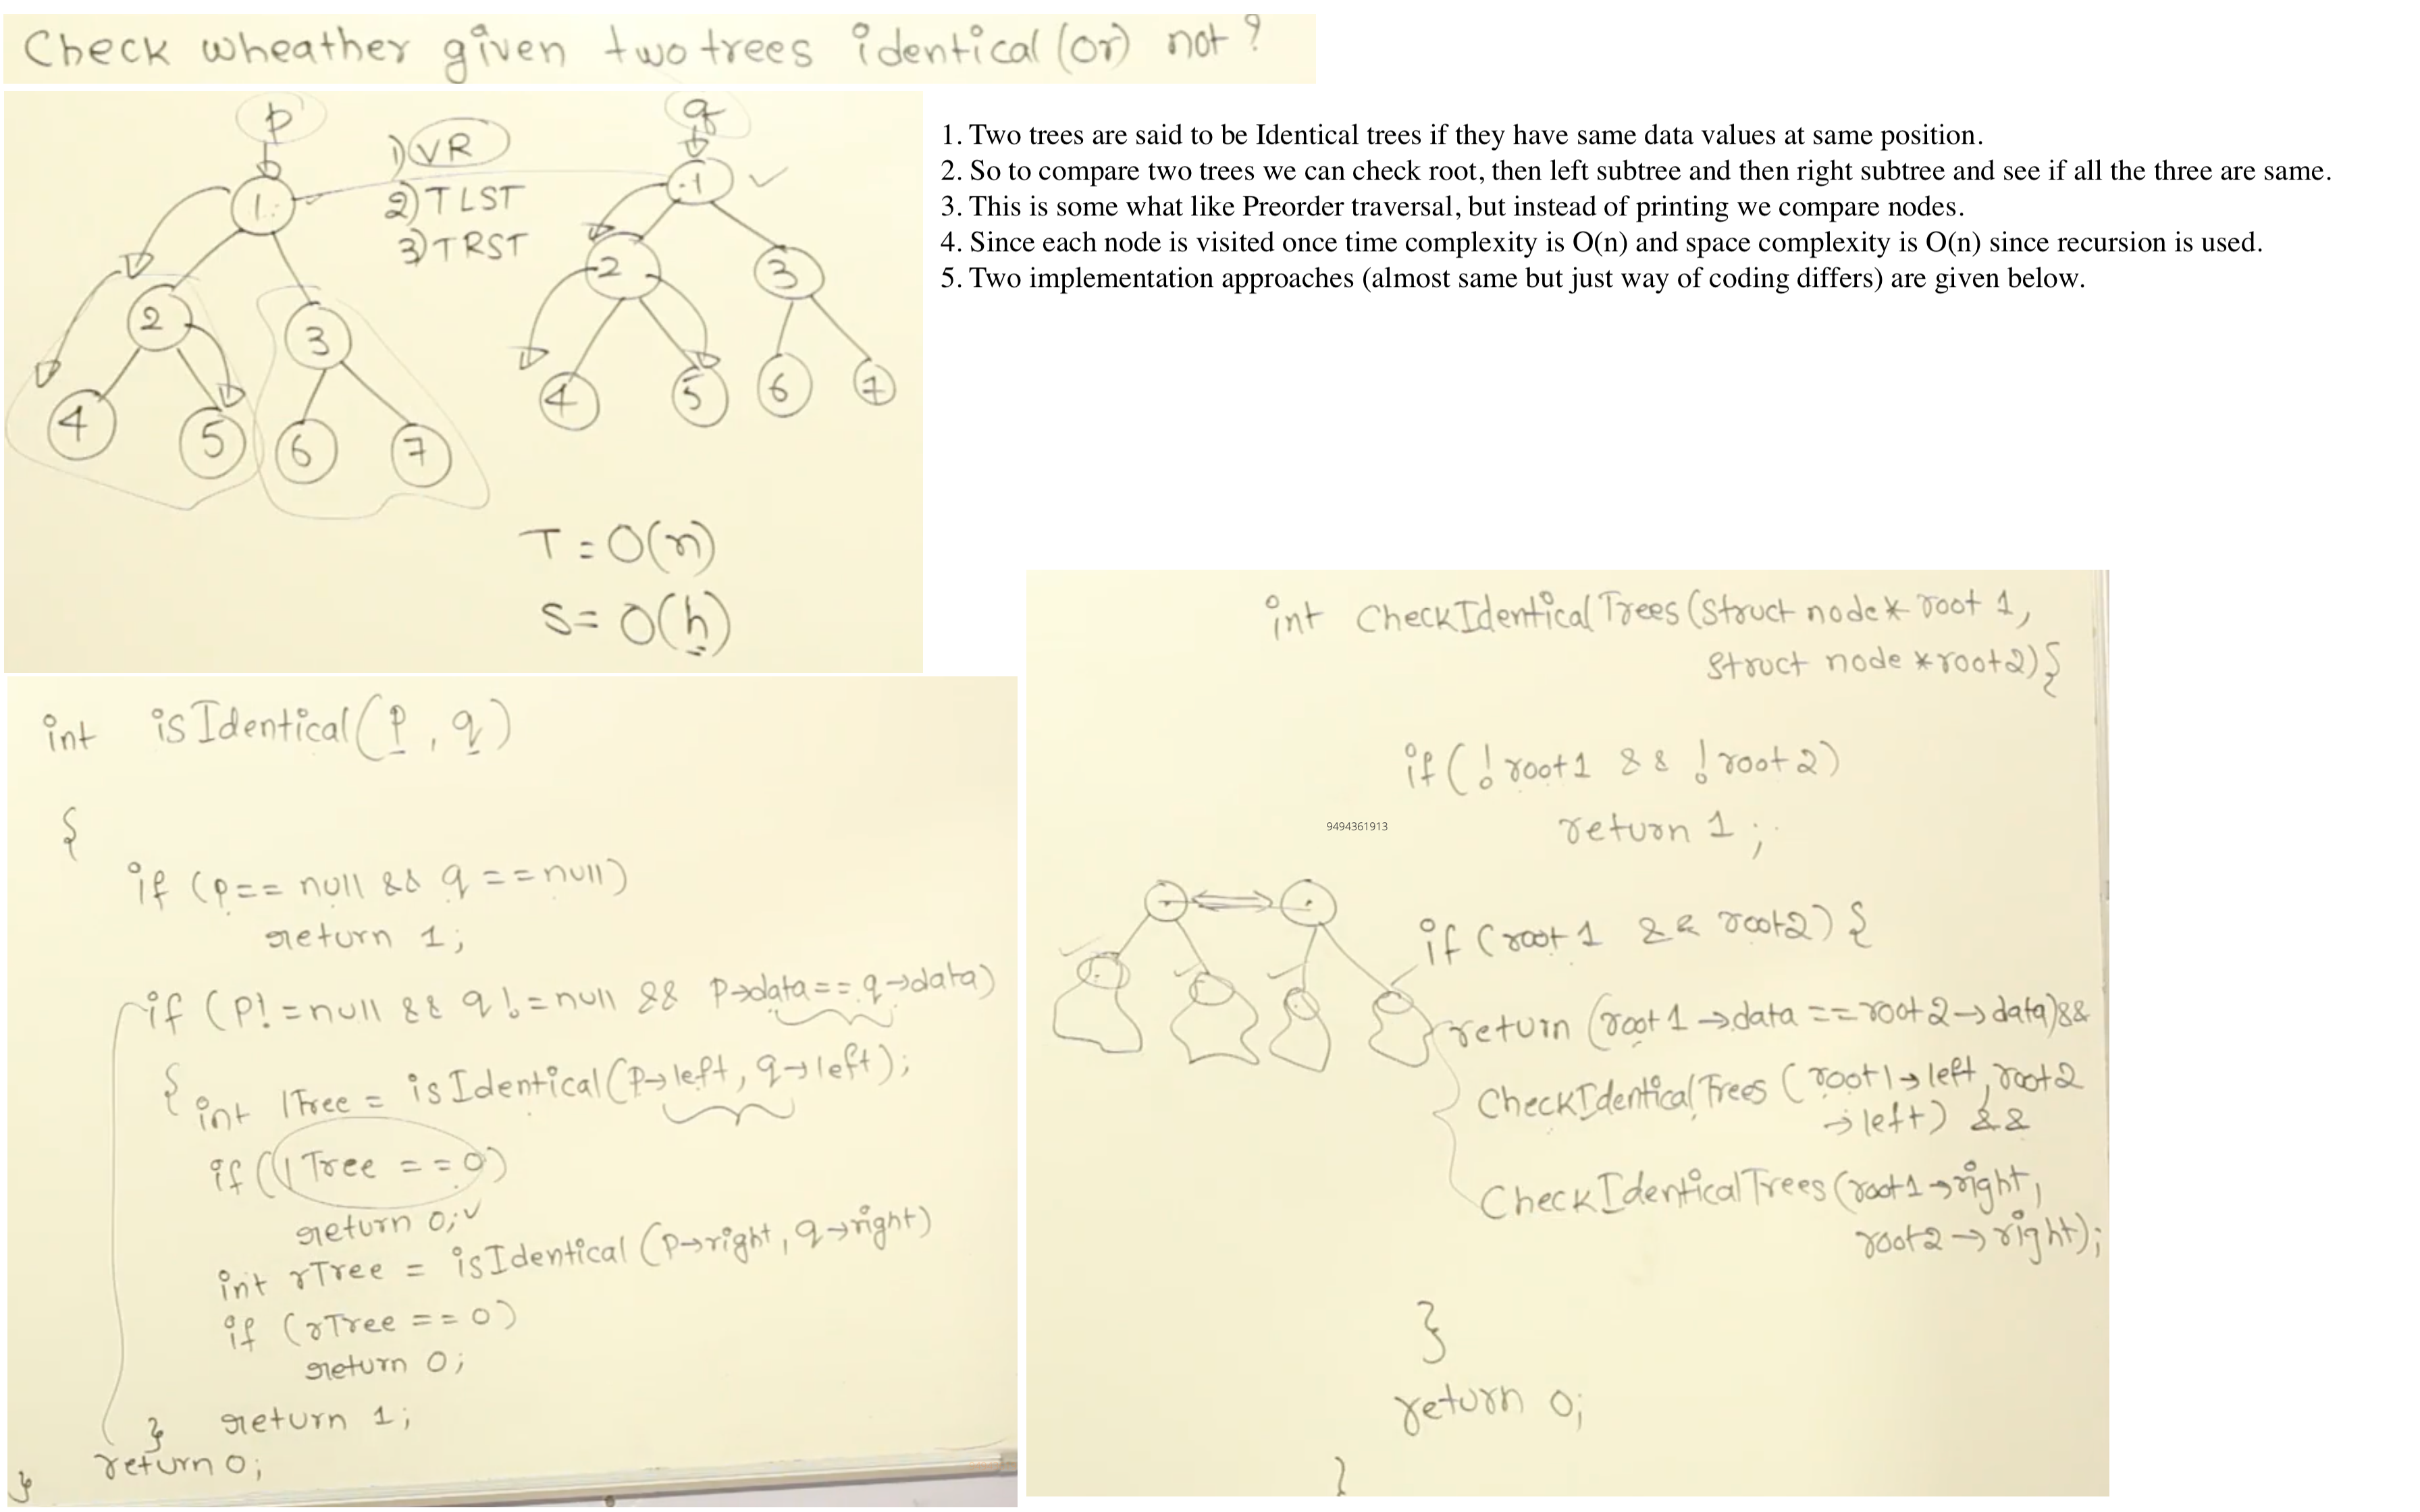 Check wheather given two trees identical (or) not?
p
q
1) VR
2) TLST
3) TRST
1
2
3
4
5
6
7
1
2
3
4
5
6
7
T = O(n)
S = O(h)
1. Two trees are said to be Identical trees if they have same data values at same position.
2. So to compare two trees we can check root, then left subtree and then right subtree and see if all the three are same.
3. This is some what like Preorder traversal, but instead of printing we compare nodes.
4. Since each node is visited once time complexity is O(n) and space complexity is O(n) since recursion is used.
5. Two implementation approaches (almost same but just way of coding differs) are given below.
int isIdentical(p, q)
{
if (p == null && q == null)
return 1;
if (p! = null && q != null && p→data == q→data)
{ int lTree = isIdentical(p→left, q→left);
if (lTree == 0)
return 0;
int rTree = isIdentical (p→right, q→right)
if (rTree == 0)
return 0;
} return 1;
return 0;
}
int CheckIdenticalTrees(struct node* root 1,
struct node *root2){
if (!root1 && !root2)
return 1;
9494361913
if (root 1 && root2) {
return (root1→data == root2→data)&&
CheckIdenticalTrees (root1→left, root2
→left) &&
CheckIdenticalTrees (root1→right,
root2→right);
}
return 0;
}